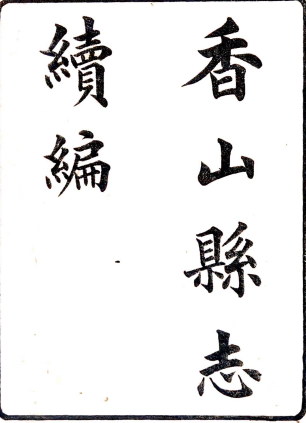 香山縣志
續編